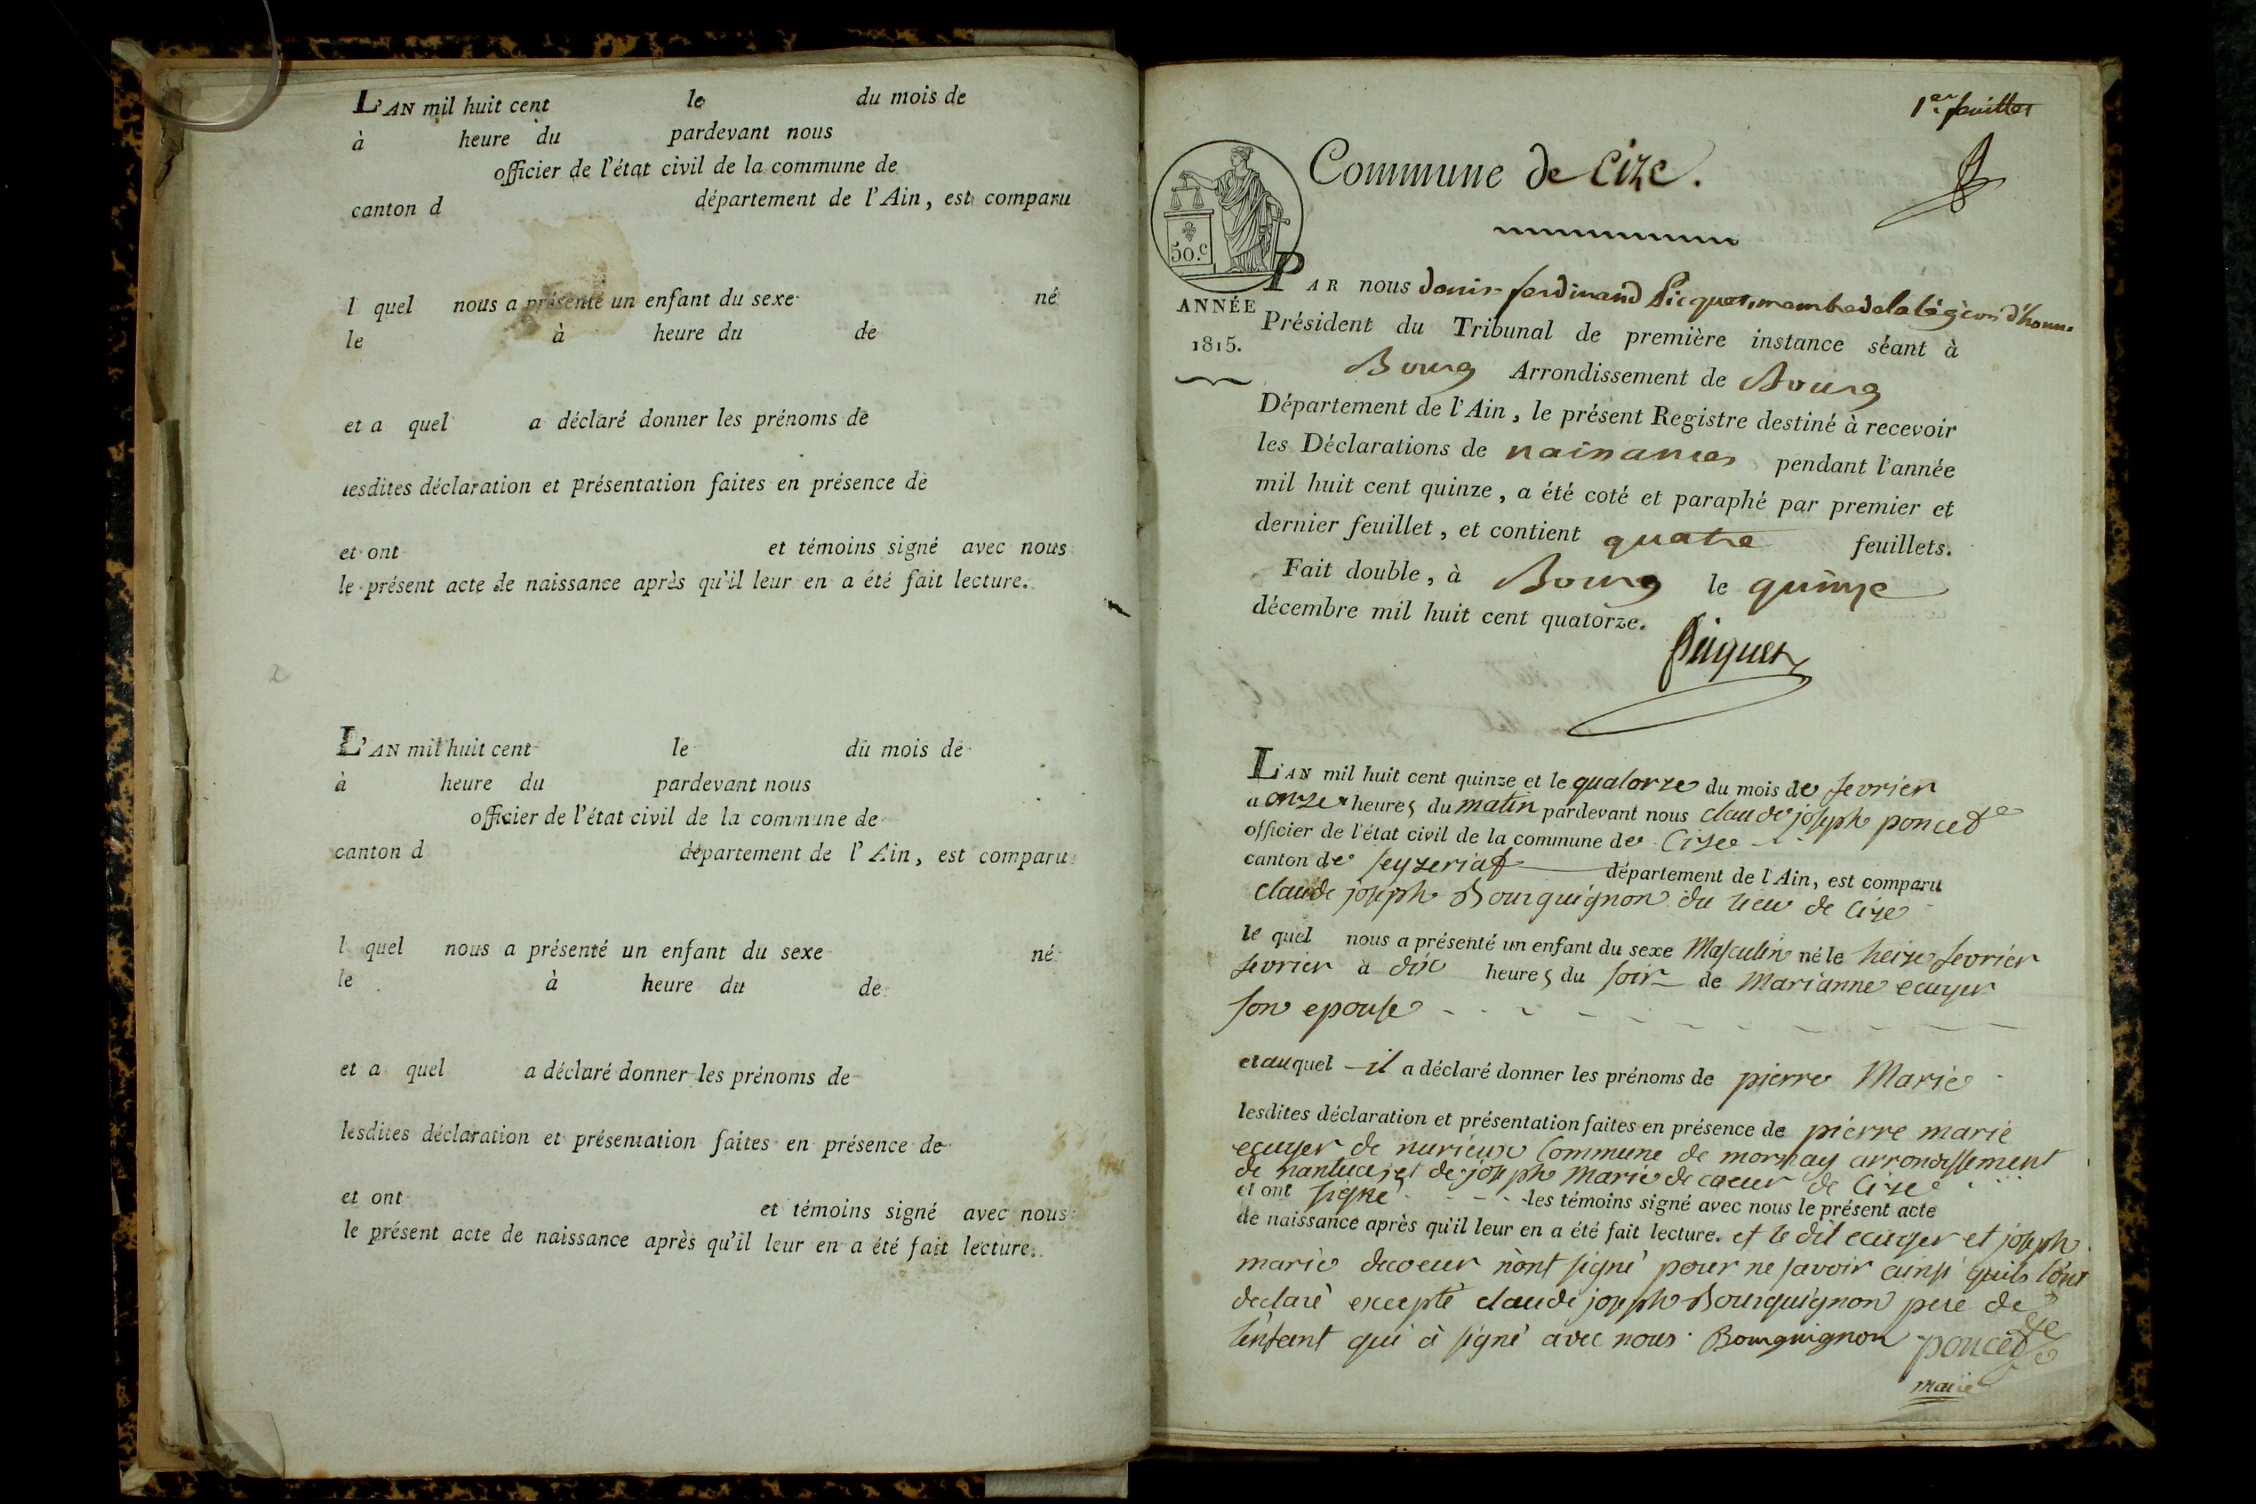 L'AN mil huit cent le du mois de
à heure du pardevant nous
officier de l'état civil de la commune de
canton d département de l'Ain, est comparu
l quel nous a présenté un enfant du sexe né
le à heure du de
et a quel a déclaré donner les prénoms de
lesdites déclaration et présentation faites en présence de
et ont et témoins signé avec nous
le présent acte de naissance après qu'il leur en a été fait lecture.
2
L'AN mil huit cent le du mois de
à heure du pardevant nous
officier de l'état civil de la commune de
canton d département de l'Ain, est comparu
l quel nous a présenté un enfant du sexe né
le à heure du de
et a quel a déclaré donner les prénoms de
lesdites déclaration et présentation faites en présence de
et ont et témoins signé avec nous
le présent acte de naissance après qu'il leur en a été fait lecture.
1er feuillet
Commune de Cize.
50.c
ANNÉE
1815.
PAR nous denis ferdinand Picquet, membre de la légion d'honn.
Président du Tribunal de première instance séant à
Bourg Arrondissement de Bourg
Département de l'Ain, le présent Registre destiné à recevoir
les Déclarations de naissances pendant l'année
mil huit cent quinze, a été coté et paraphé par premier et
dernier feuillet, et contient quatre feuillets.
Fait double, à Bourg le quinze
décembre mil huit cent quatorze.
Picquet
L'AN mil huit cent quinze et le quatorze du mois de fevrier
a onze heures du matin pardevant nous claude joseph poncet
officier de l'état civil de la commune de Cize
canton de seyzeriat département de l'Ain, est comparu
claude joseph Bourguignon du lieu de Cize
le quel nous a présenté un enfant du sexe Masculin né le treize fevrier
fevrier a dix heures du soir de Marianne ecuyer
son epouse
et au quel il a déclaré donner les prénoms de pierre Marie
lesdites déclaration et présentation faites en présence de pierre marie
ecuyer de nurieux Commune de mornay arrondissement
de nantua, et de joseph Marie decoeur de Cize
et ont signé les témoins signé avec nous le présent acte
de naissance après qu'il leur en a été fait lecture. et le dit ecuyer et joseph
marie decoeur n'ont signé pour ne savoir ainsi quils l'ont
declaré excepté claude joseph Bourguignon pere de
l'enfant qui à signé avec nous. Bourguignon poncet
maire